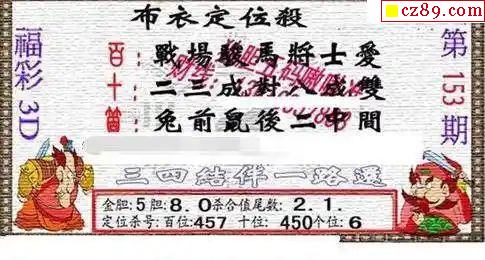 cz89.com
布衣定位殺
福彩3D
第153期
百:戰場駿馬將士愛
十:二三成對八成雙
個:兔前鼠後二中間
三四結伴一路選
金胆:5胆:8.0杀合值尾数:2.1.
定位杀号:百位:457 十位:450个位:6